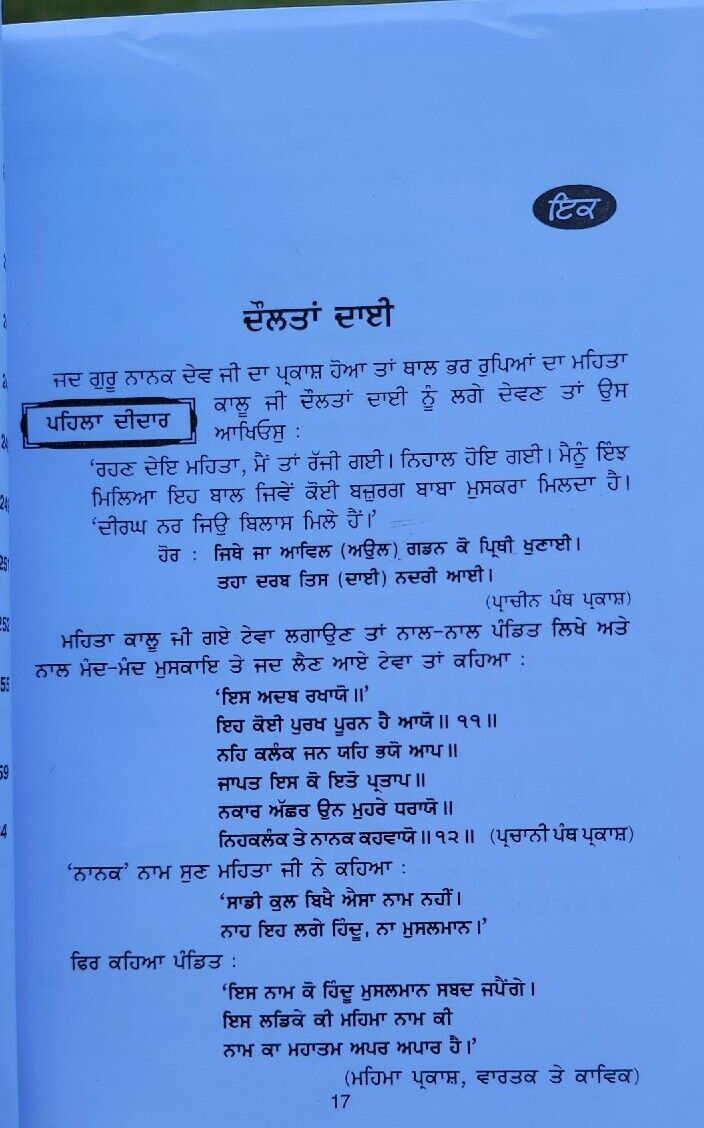 ਇਕ
ਦੌਲਤਾਂ ਦਾਈ
ਜਦ ਗੁਰੂ ਨਾਨਕ ਦੇਵ ਜੀ ਦਾ ਪ੍ਰਕਾਸ਼ ਹੋਆ ਤਾਂ ਥਾਲ ਭਰ ਰੁਪਿਆਂ ਦਾ ਮਹਿਤਾ
ਪਹਿਲਾ ਦੀਦਾਰ
ਕਾਲੂ ਜੀ ਦੌਲਤਾਂ ਦਾਈ ਨੂੰ ਲਗੇ ਦੇਵਣ ਤਾਂ ਉਸ
ਆਖਿਓਸੁ :
‘ਰਹਣ ਦੇਇ ਮਹਿਤਾ, ਮੈਂ ਤਾਂ ਰੱਜੀ ਗਈ। ਨਿਹਾਲ ਹੋਇ ਗਈ। ਮੈਨੂੰ ਇੰਝ
ਮਿਲਿਆ ਇਹ ਬਾਲ ਜਿਵੇਂ ਕੋਈ ਬਜ਼ੁਰਗ ਬਾਬਾ ਮੁਸਕਰਾ ਮਿਲਦਾ ਹੈ।
‘ਦੀਰਘ ਨਰ ਜਿਉ ਬਿਲਾਸ ਮਿਲੇ ਹੈਂ।’
ਹੋਰ : ਜਿਥੇ ਜਾ ਆਵਿਲ (ਅਉਲ) ਗਡਨ ਕੋ ਪ੍ਰਿਥੀ ਖੁਣਾਈ।
ਤਹਾ ਦਰਬ ਤਿਸ (ਦਾਈ) ਨਦਰੀ ਆਈ।
(ਪ੍ਰਾਚੀਨ ਪੰਥ ਪ੍ਰਕਾਸ਼)
ਮਹਿਤਾ ਕਾਲੂ ਜੀ ਗਏ ਟੇਵਾ ਲਗਾਉਣ ਤਾਂ ਨਾਲ-ਨਾਲ ਪੰਡਿਤ ਲਿਖੇ ਅਤੇ
ਨਾਲ ਮੰਦ-ਮੰਦ ਮੁਸਕਾਇ ਤੇ ਜਦ ਲੈਣ ਆਏ ਟੇਵਾ ਤਾਂ ਕਹਿਆ :
‘ਇਸ ਅਦਬ ਰਖਾਯੋ॥’
ਇਹ ਕੋਈ ਪੁਰਖ ਪੂਰਨ ਹੈ ਆਯੋ॥੧੧॥
ਨਹਿ ਕਲੰਕ ਜਨ ਯਹਿ ਭਯੋ ਆਪ॥
ਜਾਪਤ ਇਸ ਕੋ ਇਤੋ ਪ੍ਰਤਾਪ॥
ਨਕਾਰ ਅੱਛਰ ਉਨ ਮੁਹਰੇ ਧਰਾਯੋ॥
ਨਿਹਕਲੰਕ ਤੇ ਨਾਨਕ ਕਹਵਾਯੋ॥੧੨॥ (ਪ੍ਰਚਾਨੀ ਪੰਥ ਪ੍ਰਕਾਸ਼)
‘ਨਾਨਕ’ ਨਾਮ ਸੁਣ ਮਹਿਤਾ ਜੀ ਨੇ ਕਹਿਆ :
‘ਸਾਡੀ ਕੁਲ ਬਿਖੈ ਐਸਾ ਨਾਮ ਨਹੀਂ।
ਨਾਹ ਇਹ ਲਗੇ ਹਿੰਦੂ, ਨਾ ਮੁਸਲਮਾਨ।’
ਫਿਰ ਕਹਿਆ ਪੰਡਿਤ :
‘ਇਸ ਨਾਮ ਕੋ ਹਿੰਦੂ ਮੁਸਲਮਾਨ ਸਬਦ ਜਪੈਂਗੇ।
ਇਸ ਲਡਿਕੇ ਕੀ ਮਹਿਮਾ ਨਾਮ ਕੀ
ਨਾਮ ਕਾ ਮਹਾਤਮ ਅਪਰ ਅਪਾਰ ਹੈ।’
(ਮਹਿਮਾ ਪ੍ਰਕਾਸ਼, ਵਾਰਤਕ ਤੇ ਕਾਵਿਕ)
17